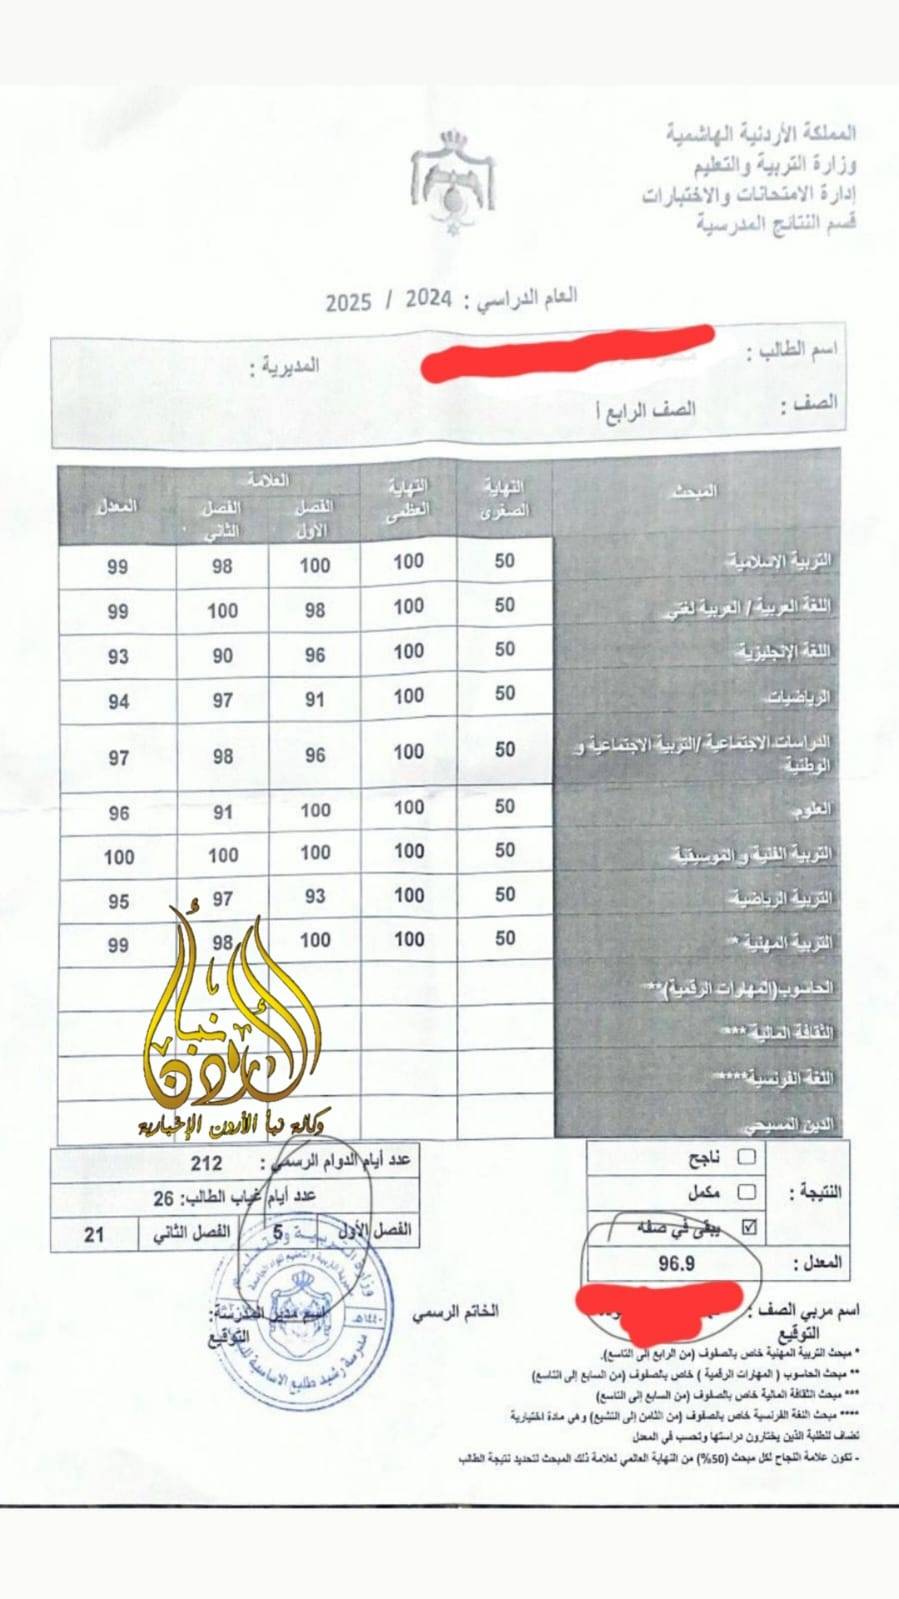 المملكة الأردنية الهاشمية
وزارة التربية والتعليم
إدارة الامتحانات والاختبارات
قسم النتائج المدرسية
العام الدراسي : 2024 / 2025
اسم الطالب :
المديرية :
الصف : الصف الرابع أ
المبحث النهاية الصغرى النهاية العظمى العلامة المعدل
الفصل الأول الفصل الثاني
التربية الإسلامية 50 100 100 98 99
اللغة العربية / العربية لغتي 50 100 98 100 99
اللغة الإنجليزية 50 100 96 90 93
الرياضيات 50 100 91 97 94
الدراسات الاجتماعية /التربية الاجتماعية و
الوطنية 50 100 96 98 97
العلوم 50 100 100 91 96
التربية الفنية و الموسيقية 50 100 100 100 100
التربية الرياضية 50 100 93 97 95
التربية المهنية * 50 100 100 98 99
الحاسوب(المهارات الرقمية)**
الثقافة المالية ***
اللغة الفرنسية****
الدين المسيحي
نبأ الأردن
وكالة نبأ الأردن الإخبارية
النتيجة :
ناجح
مكمل
يبقى في صفه
المعدل : 96.9
عدد أيام الدوام الرسمي : 212
عدد أيام غياب الطالب: 26
الفصل الأول 5 الفصل الثاني 21
اسم مربي الصف :
التوقيع
الخاتم الرسمي
اسم مدير المدرسة:
التوقيع
وزارة التربية والتعليم
مدرسة رشيد طليع الاساسية
* مبحث التربية المهنية خاص بالصفوف (من الرابع إلى التاسع).
** مبحث الحاسوب ( المهارات الرقمية ) خاص بالصفوف (من السابع إلى التاسع)
*** مبحث الثقافة المالية خاص بالصفوف (من السابع إلى التاسع)
**** مبحث اللغة الفرنسية خاص بالصفوف (من الثامن إلى التاسع) وهي مادة اختيارية
تضاف للطلبة الذين يختارون دراستها وتحسب في المعدل
- تكون علامة النجاح لكل مبحث (50%) من النهاية العالمي لعلامة ذلك المبحث لتحديد نتيجة الطالب